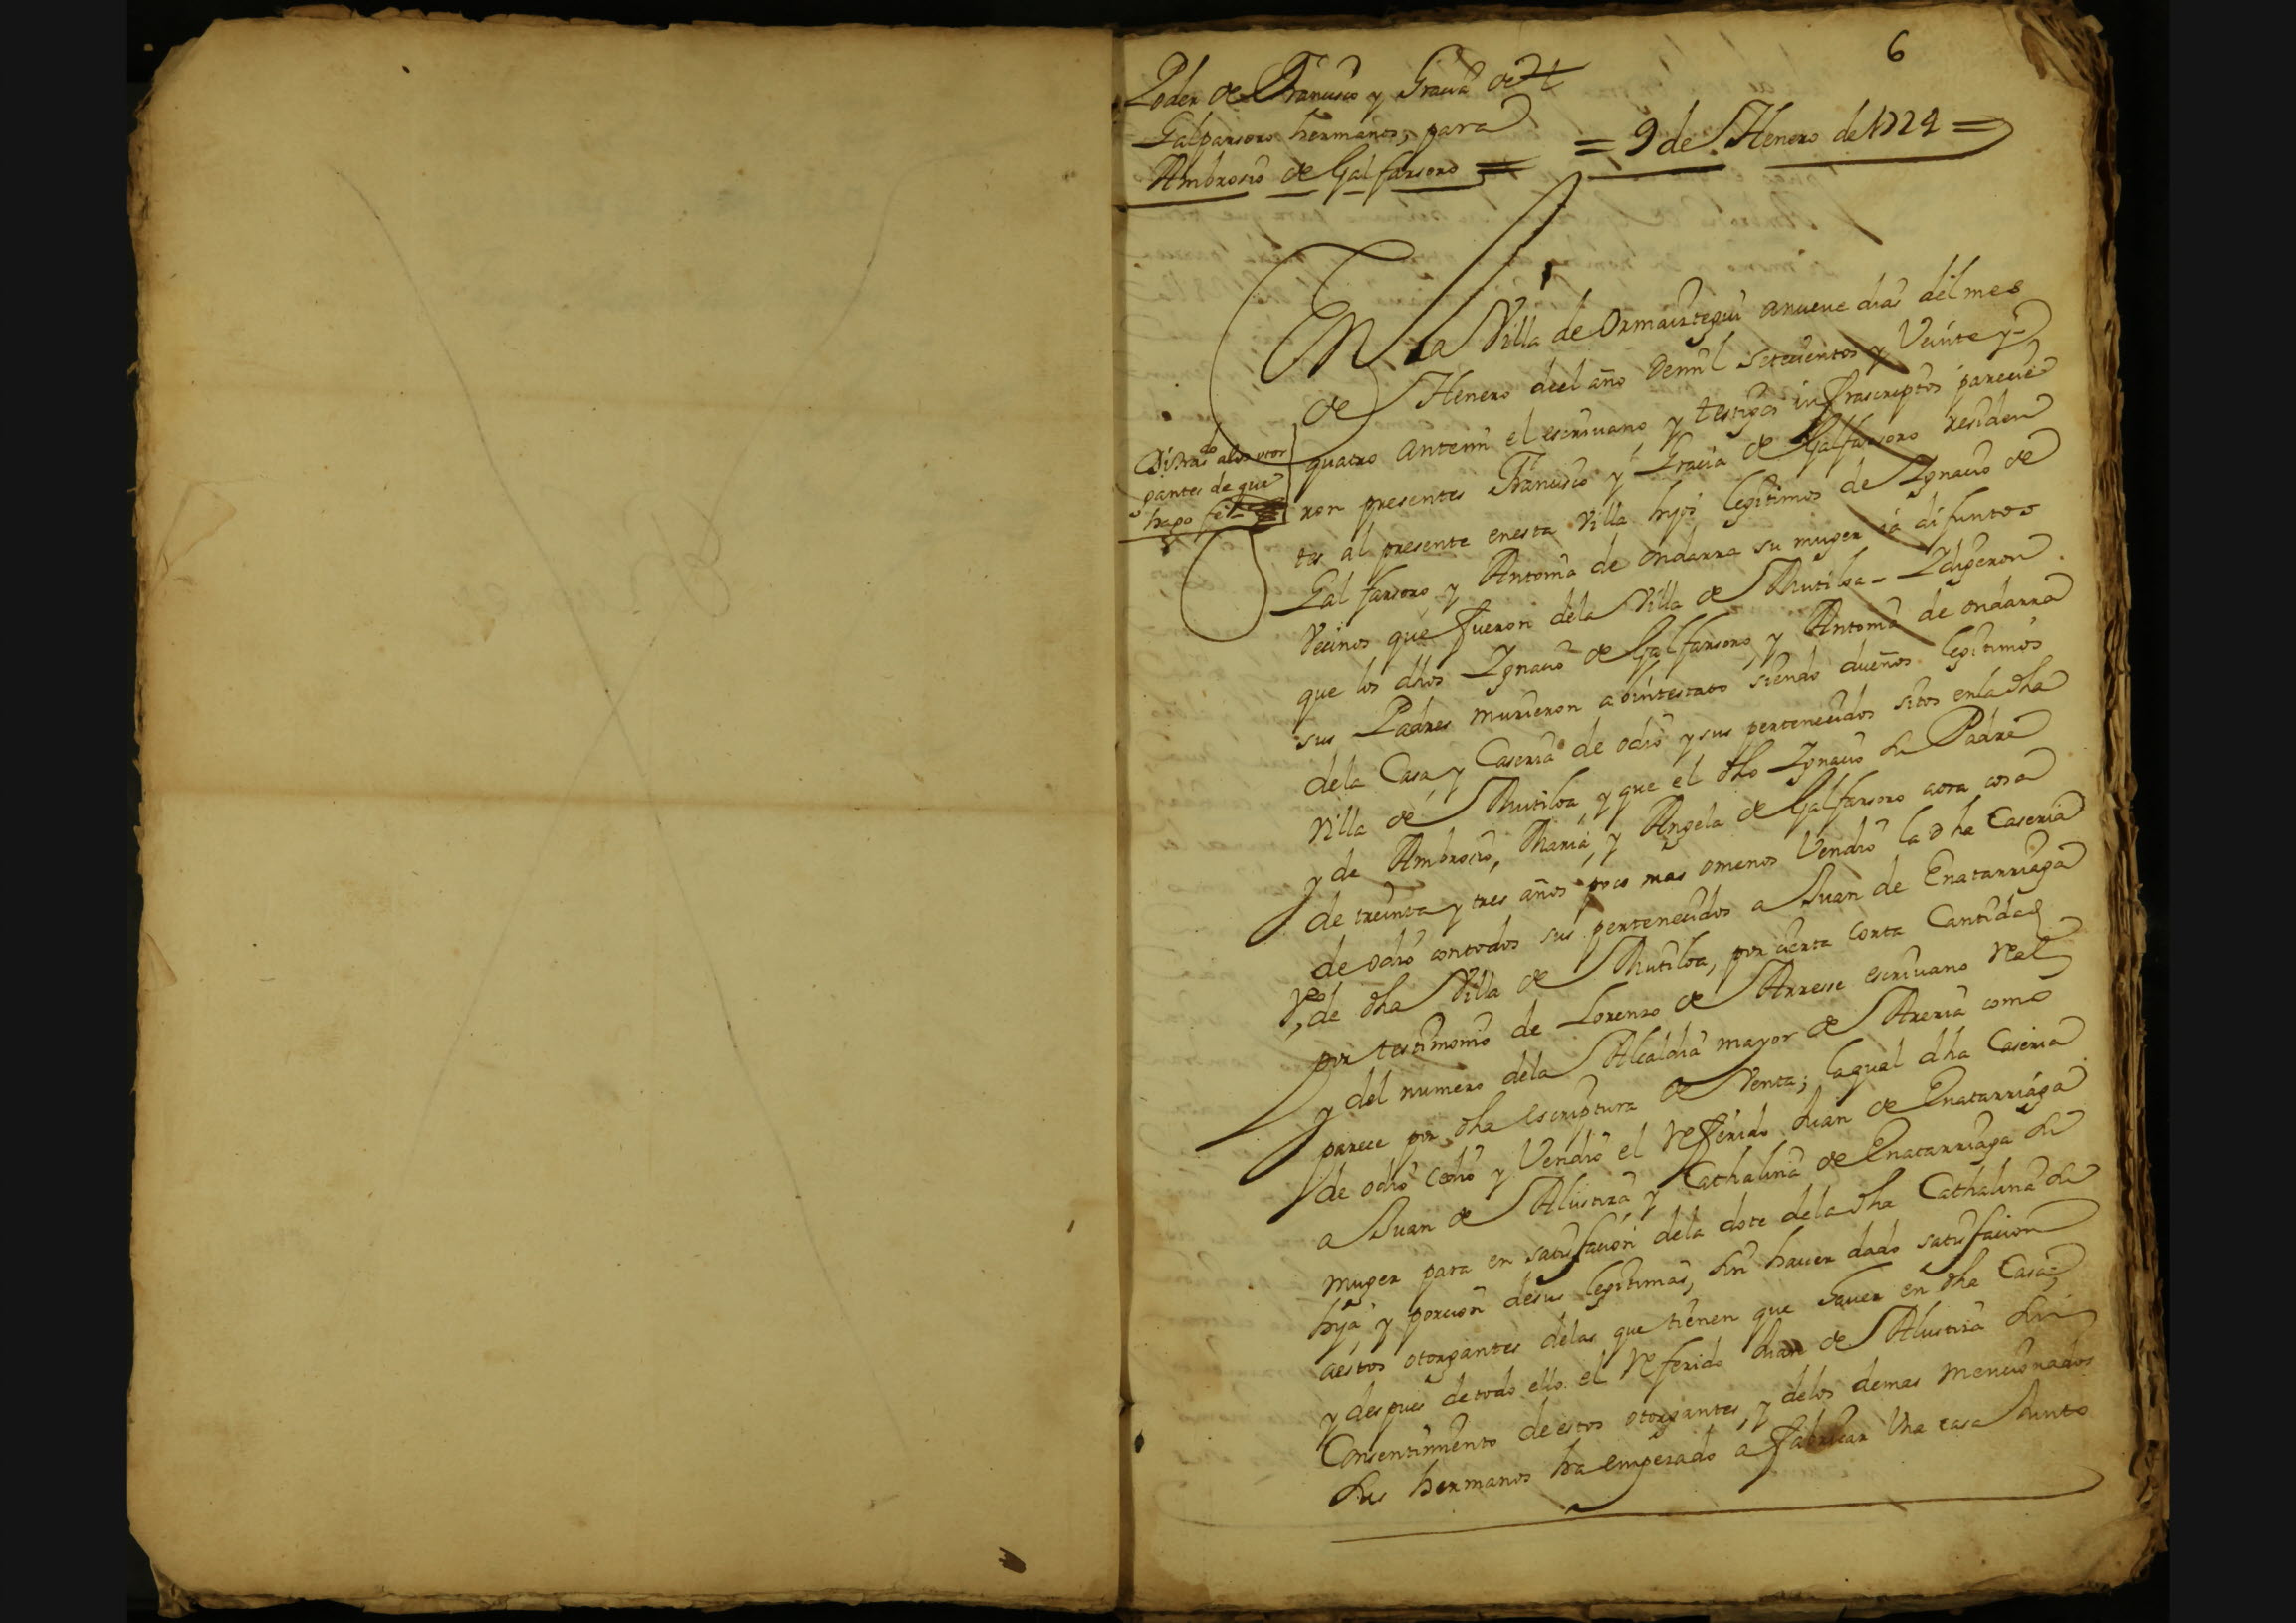 6
Poder de Francisco y Gracia de
Galparsoro hermanos, para
Ambrosio de Galfarsoro =
= 9 de Henero de 1724 =
En la Villa de Ormaiztegui a nueve dias del mes
de Henero del año de mil setecientos y Veinte y
quatro ante mi el escrivano y testigos infrascriptos parecie
ron presentes Francisco y Gracia de Galfarsoro residen
tes al presente en esta Villa hijos legitimos de Ygnacio de
Galfarsoro y Antonia de Ondarra su muger ia difuntos
Vecinos que fueron de la Villa de Mutiloa - Y digeron
que los dhos Ygnacio de Galfarsoro y Antonia de ondarra
sus Padres murieron abintestato siendo dueños legitimos
de la Casa y Caseria de odio y sus pertenecidos sitos en la dha
Villa de Mutiloa, y que el dho Ygnacio su Padre
y de Ambrosio, Maria, y Angela de Galfarsoro aora cosa
de treinta y tres años poco mas o menos Vendio la dha Caseria
de odio con todos sus pertenecidos a Juan de Enatarriaga
Vº de dha Villa de Mutiloa, por cierta corta Cantidad
por testimonio de Lorenzo de Arrese escrivano Real
y del numero de la Alcaldia mayor de Areria como
parece por dha escriptura de Venta; la qual dha Caseria
de odio cedio y Vendio el Referido Juan de Enatarriaga
a Juan de Alustiza y Cathalina de Enatarriaga su
muger para en satisfacion de la dote de la dha Cathalina su
hija y porcion de sus legitimas, sin haver dado satisfacion
a estos otorgantes de las que tienen que haver en dha Casa;
y despues de todo ello el Referido Juan de Alustiza sin
Consentimiento de estos otorgantes, y de los demas mencionados
sus hermanos ha empezado a fabricar Una casa Junto
Di trasdo a los otor
gantes de que
hago fee